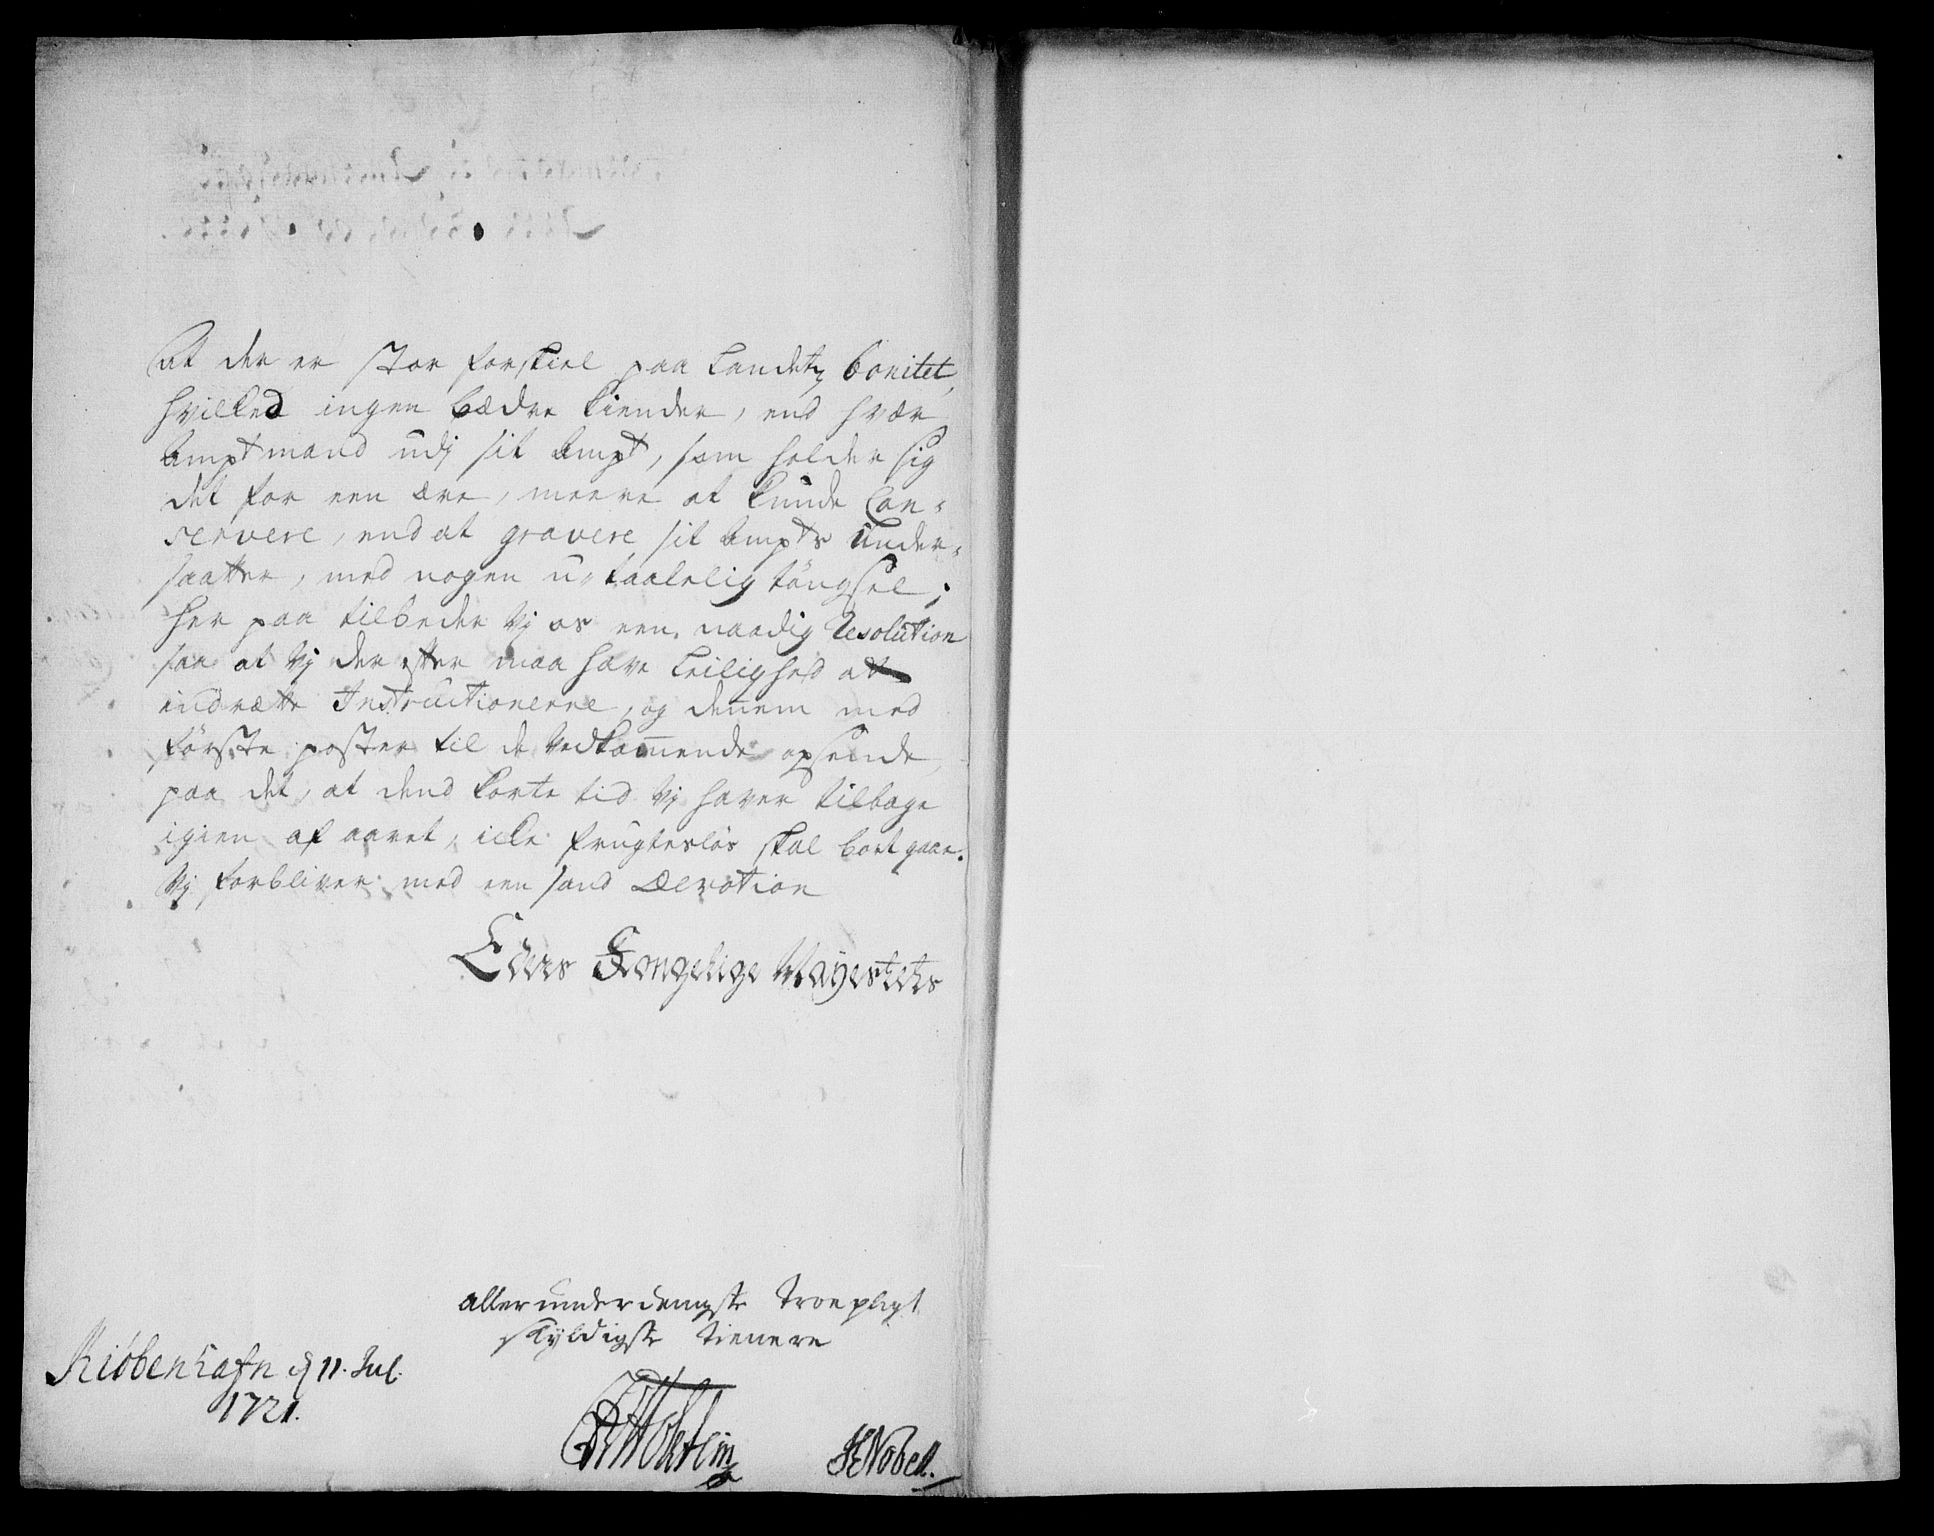 at der er stor forskiel paa Landetz bonitet,
hvilked ingen bædre kiender, end hvær
Amptmand udj sit Ampt, som holder sig
det for een ære, meere at kunde Con-
servere, end at gravere sit Ampts under-
saatter, med nogen u-taalelig töngsel;
her paa tilbeder Vj os een naadig Resolution
saa at Vj der efter maa have Leilighed at
indrætte Instructionerne, og dennem med
förste poster til de Vedkommende opsende,
paa det, at dend korte tid Vj haver tilbage
igien af aaret, icke frugteslös skal bort gaae.
Vj forbliver med een sand Devotion
Eders Kongelige Mayestets
allerunderdanigste Troepligt
skyldigste tienere
Kiöbenhafn d 11. Jul.
1721.
Holstein
Nobell.